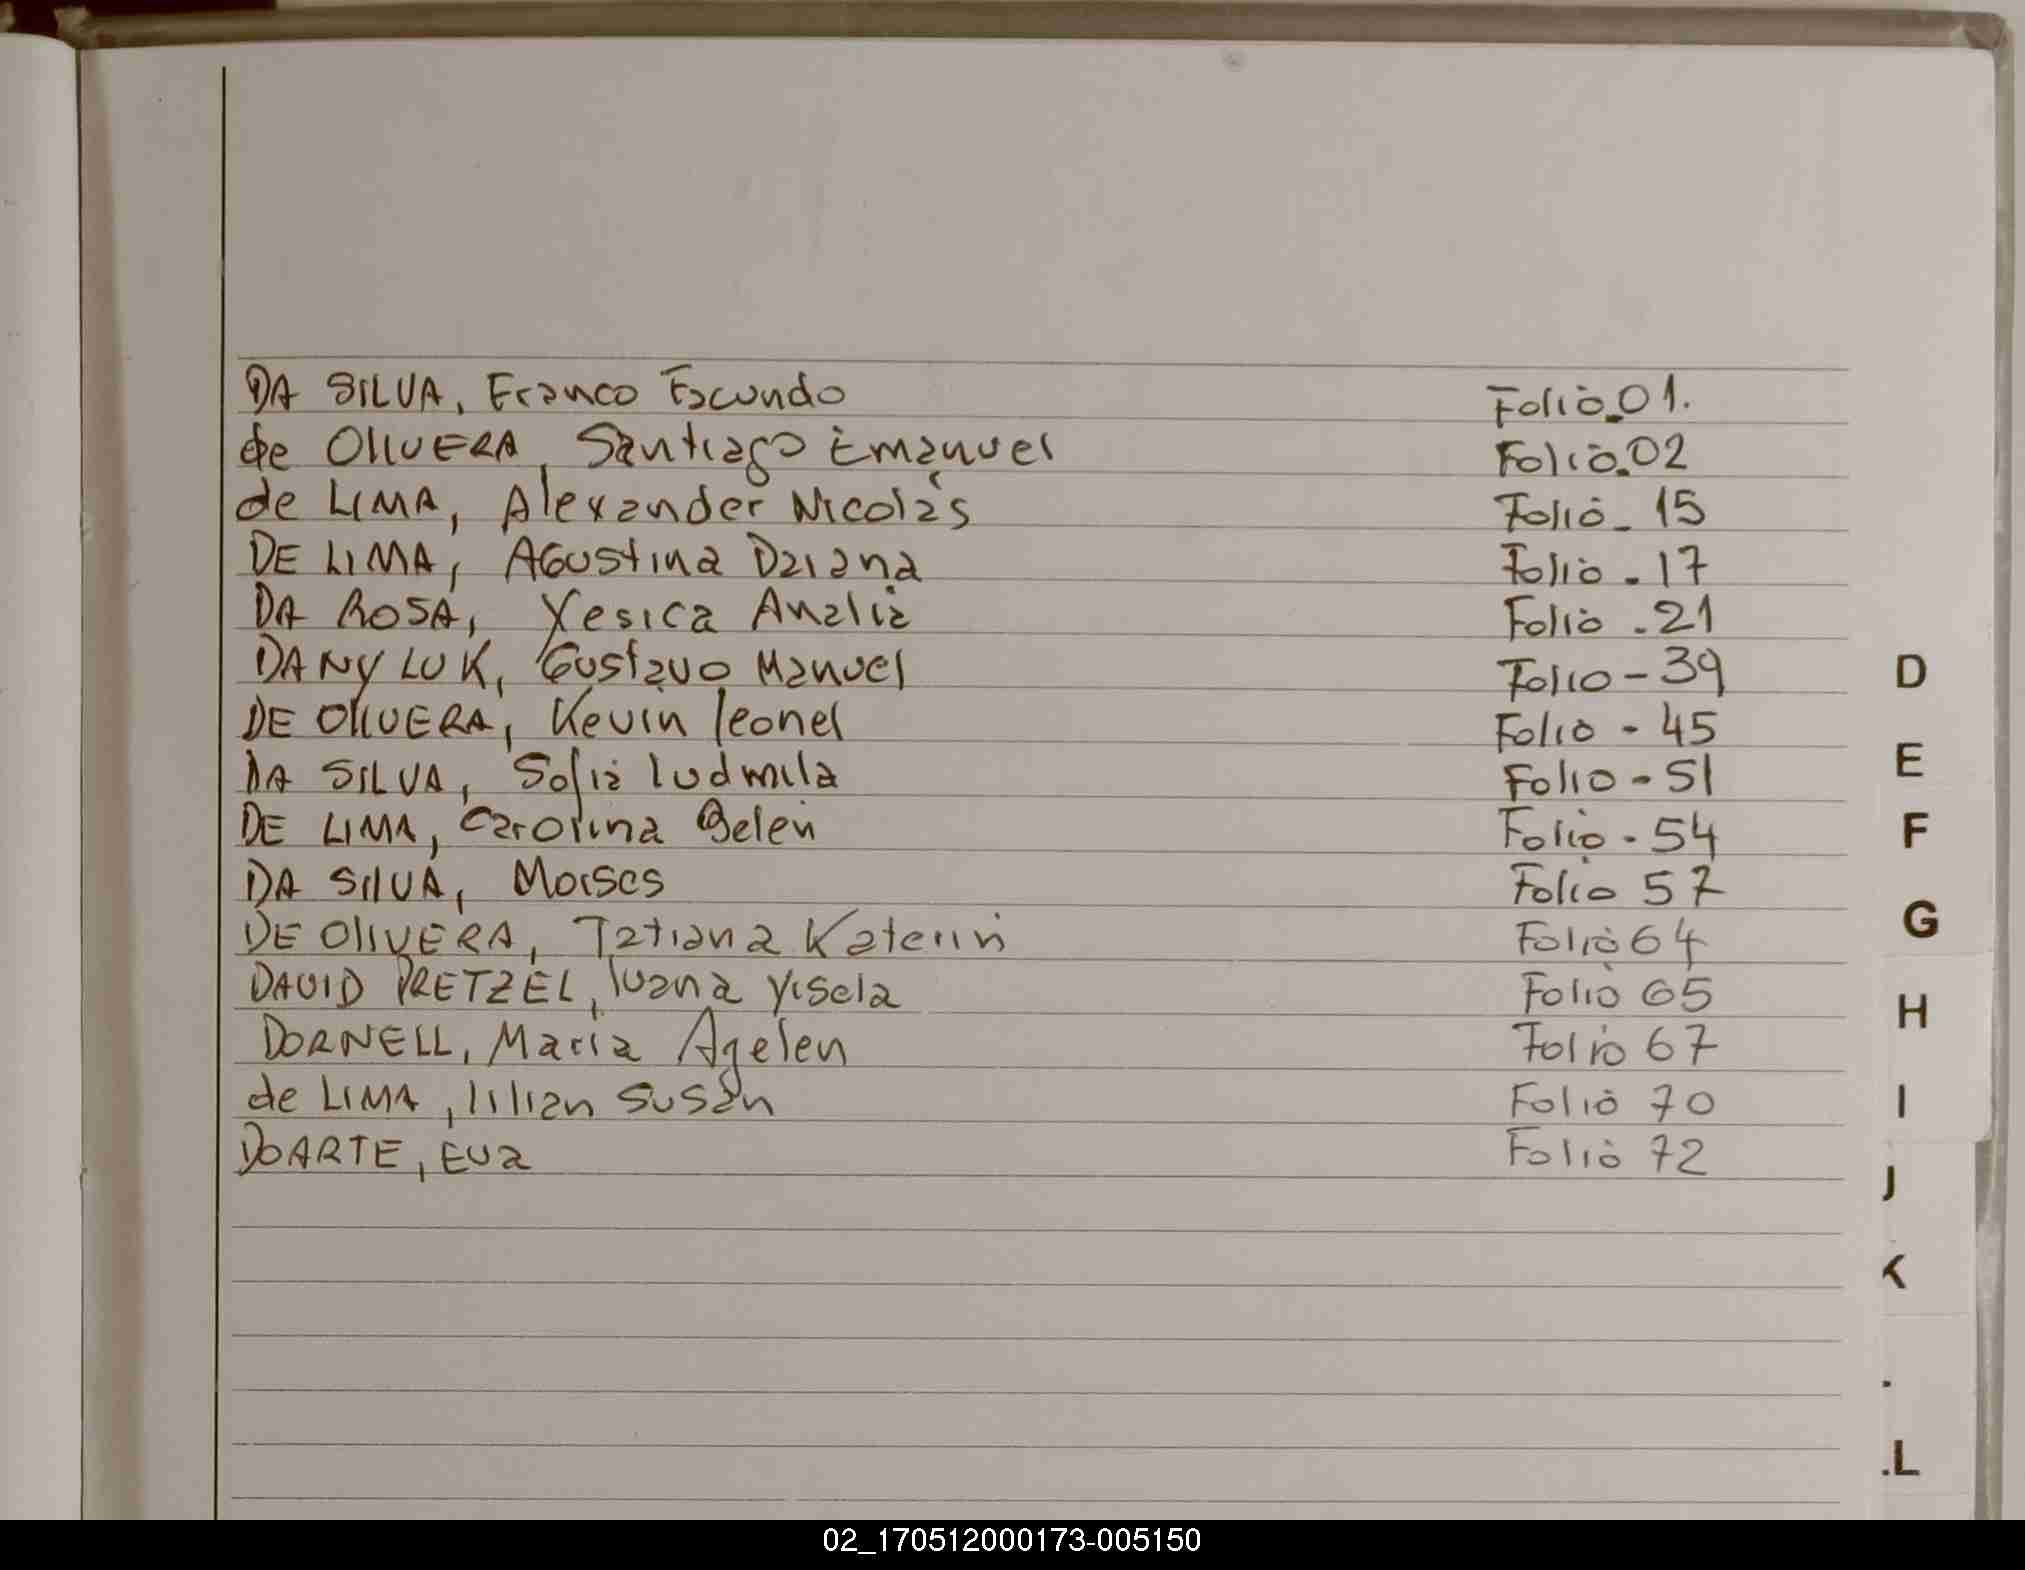 DA SILVA, Franco Facundo Folio 01.
de OlIVERA, Santiago Emanuel Folio 02
de LIMA, Alexander Nicolás Folio - 15
DE LIMA, Agustina Daiana Folio - 17
DA ROSA, Yesica Analia Folio - 21
DANYLUK, Gustavo Manuel Folio - 39
DE OlIVERA, Kevin leonel Folio - 45
DA SILVA, Sofia ludmila Folio - 51
DE LIMA, Carolina Belen Folio - 54
DA SilVA, Moises Folio 57
DE OlIVERA, Tatiana Katerin Folio 64
DAVID PRETZEL, Ivana Yisela Folio 65
DORNELL, Maria Agelen Folio 67
de LIMA, lilian Susan Folio 70
DOARTE, Eva Folio 72
D
E
F
G
H
I
J
K
.L
02_170512000173-005150